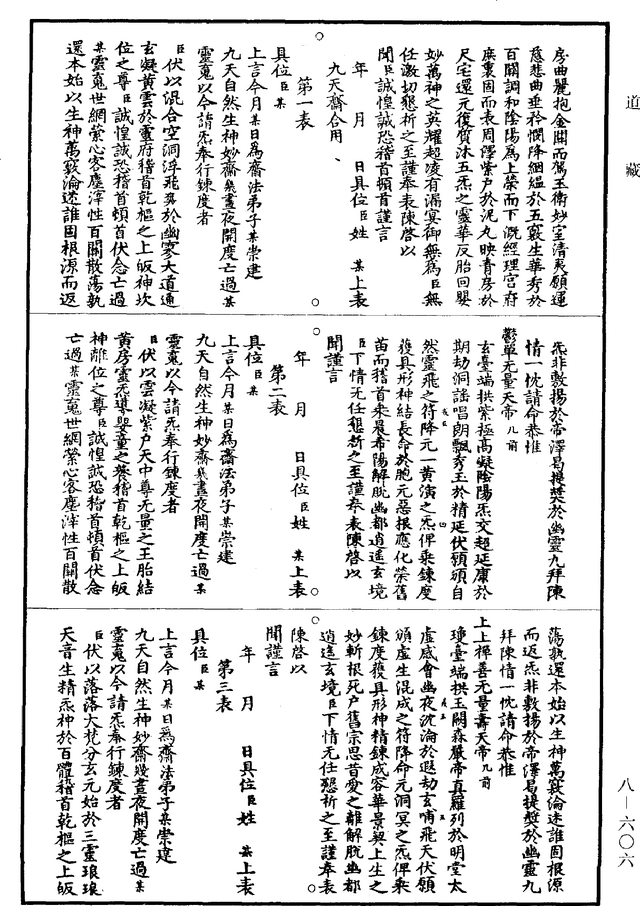 道藏
房曲麗抱金關而駕玉衛妙室清夷願運
慈悲曲垂矜憫降絪縕於五竅生華秀於
百關調和陰陽爲上榮而下溉經理宮府
庶裏固而表周澤紫戶於泥丸映青房於
尺宅還元復質沐五炁之靈華反胎回嬰
妙萬神之英耀超凌有漏冥御無爲臣無
任激切懇祈之至謹奉表陳啓以
聞臣誠惶誠恐稽首頓首謹言
年　月　日具位臣姓　某上表
九天齋合用
第一表
具位臣某
上言今月某日爲齋法弟子某崇建
九天自然生神妙齋幾晝夜開度亡過某
靈䰟以今請炁奉行鍊度者
臣伏以混合空洞浮飛炁於幽寥大道通
玄凝黃雲於靈府稽首乾樞之上皈神坎
位之尊臣誠惶誠恐稽首頓首伏念亡過
某靈䰟世網縈心客塵滓性百關散蕩孰
還本始以生神萬竅淪迷誰固根源而返
炁非敷揚於帝澤曷提奬於幽靈九拜陳
情一忱請命恭惟
鬱單无量天帝九前
玄臺端拱紫極高凝陰陽炁交超延康於
期劫洞謡唱朗飄秀玉於精延伏願頒自
然靈飛之符降元一黃演之炁俾乘鍊度
獲具形神結長命於胞元惡根應化榮舊
苗而稽首朱晨希陽解脫幽都逍遙玄境
臣下情无任懇祈之至謹奉表陳啓以
聞謹言
年　月　日具位臣姓　某上表
第二表
具位臣某
上言今月某日爲齋法弟子某崇建
九天自然生神妙齋幾晝夜開度亡過某
靈䰟以今請炁奉行鍊度者
臣伏以雲凝紫戶天中尊无量之王胎結
黃房靈炁導嬰童之養稽首乾樞之上皈
神離位之尊臣誠惶誠恐稽首頓首伏念
亡過某靈䰟世網縈心客塵滓性百關散
蕩孰還本始以生神萬竅淪迷誰固根源
而返炁非敷揚於帝澤曷提奬於幽靈九
拜陳情一忱請命恭惟
上上禪善无量壽天帝九前
瓊臺端拱玉關森嚴帝真羅列於明堂太
虛感會幽夜沈淪於遐劫玄哺飛天伏願
頒虛生混成之符降命元洞冥之炁俾乘
鍊度獲具形神精鍊成容華景契上生之
妙斬根死戶舊宗思昔愛之離解脫幽都
逍遙玄境臣下情无任懇祈之至謹奉表
陳啓以
聞謹言
年　月　日具位臣姓　某上表
第三表
具位臣某
上言今月某日爲齋法弟子某崇建
九天自然生神妙齋幾晝夜開度亡過某
靈䰟以今請炁奉行鍊度者
臣伏以落落大梵分玄元始於三靈琅琅
天音生精炁神於百體稽首乾樞之上皈
八—六〇六